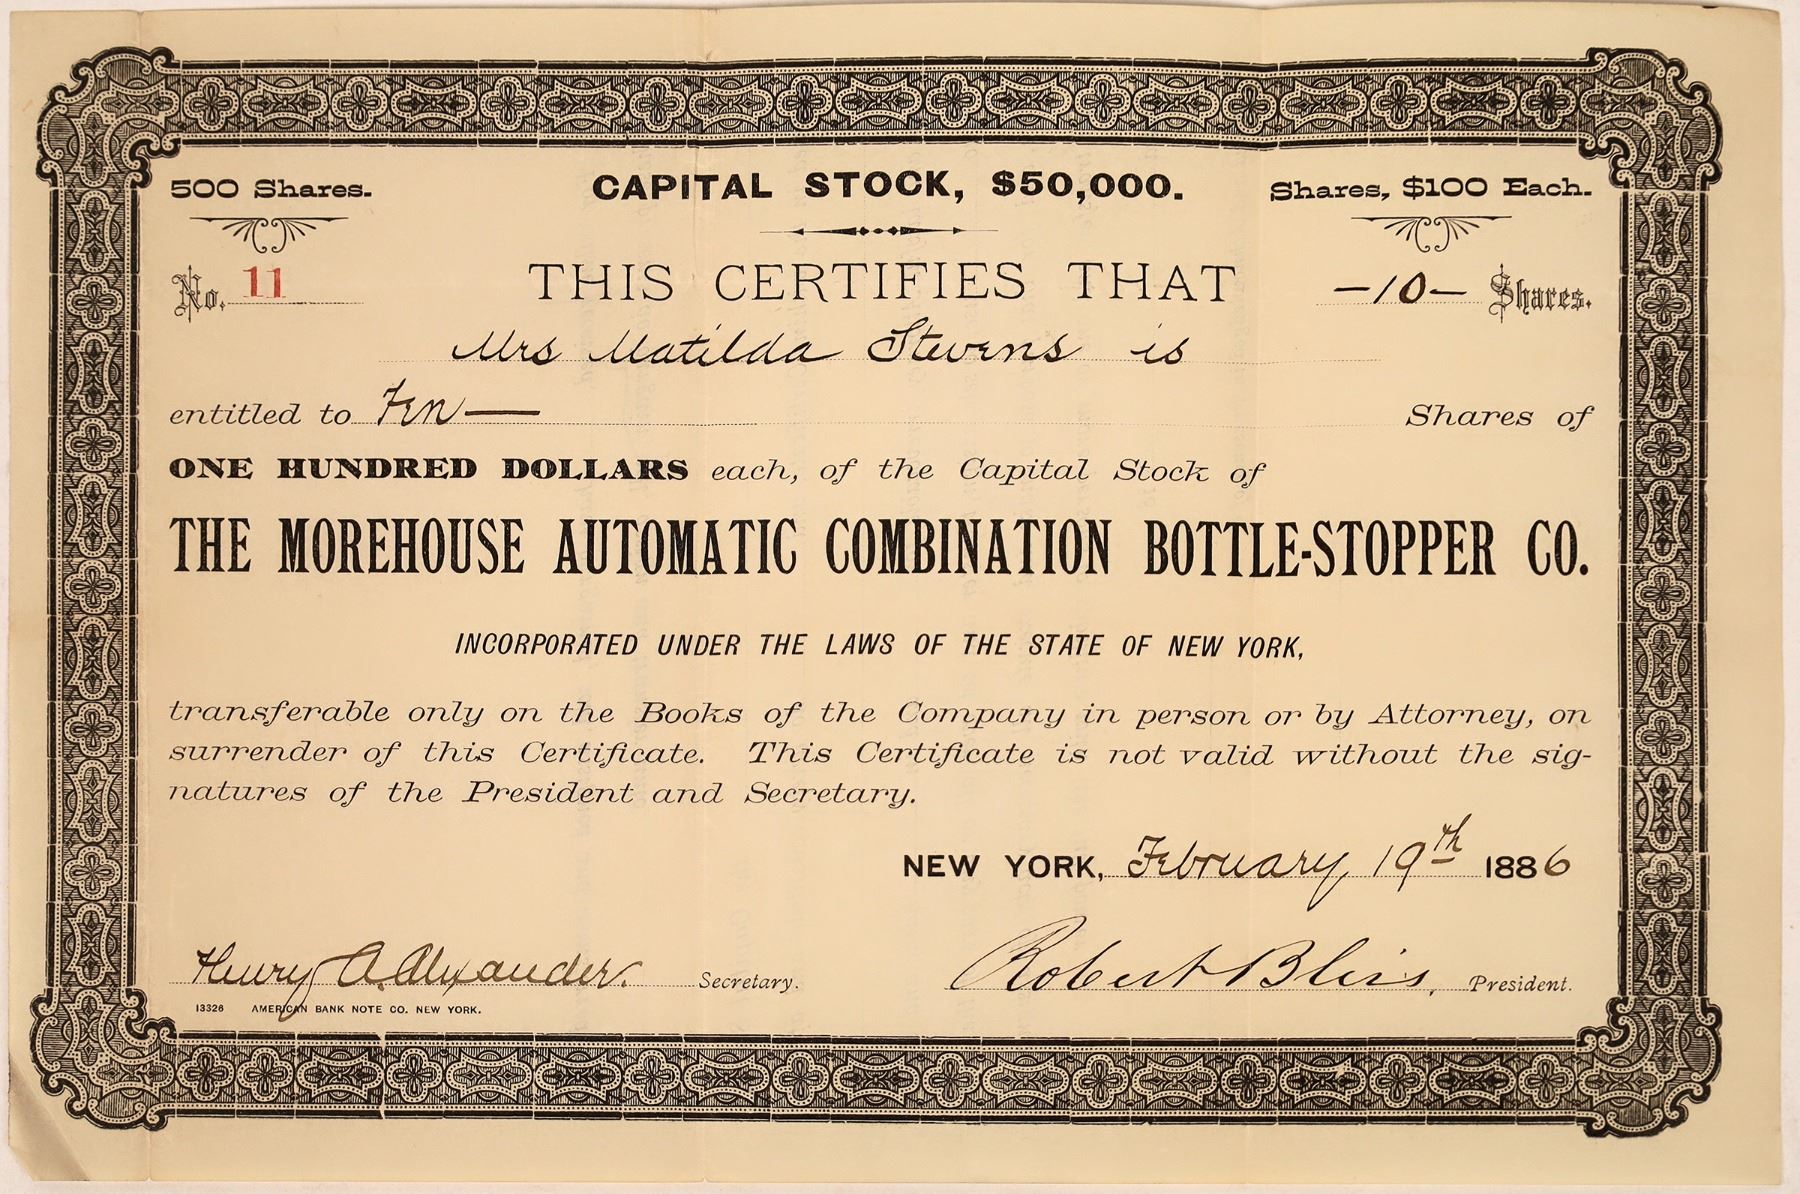 500 Shares. CAPITAL STOCK, $50,000. Shares, $100 Each.
No. 11 THIS CERTIFIES THAT —10— Shares.
Mrs Matilda Stevens is
entitled to Ten— Shares of
ONE HUNDRED DOLLARS each, of the Capital Stock of
THE MOREHOUSE AUTOMATIC COMBINATION BOTTLE-STOPPER CO.
INCORPORATED UNDER THE LAWS OF THE STATE OF NEW YORK,
transferable only on the Books of the Company in person or by Attorney, on
surrender of this Certificate. This Certificate is not valid without the sig-
natures of the President and Secretary.
NEW YORK, February 19th 1886
Henry A. Alexander. Secretary. Robert Bliss, President.
13326 AMERICAN BANK NOTE CO. NEW YORK.